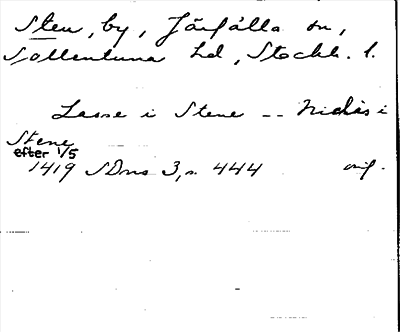 Sten, by, Järfälla sn,
Sollentuna hd, Stockh. l.
Lasse i Stene -- Niclis i
Stene
efter 1/5
1419 SDns 3, s. 444 orig.